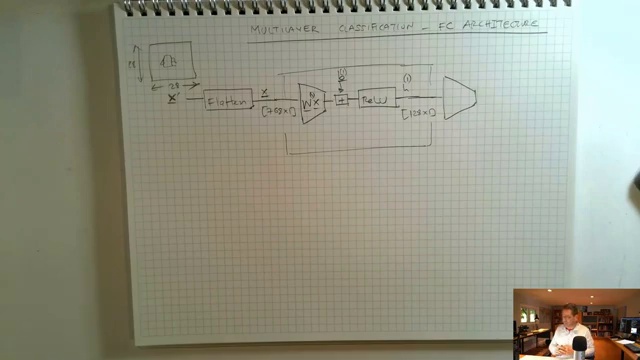 MULTILAYER CLASSIFICATION - FC ARCHITECTURE
28
x'
Flatten
x
W x
+
ReLU
(1)
[128x1]